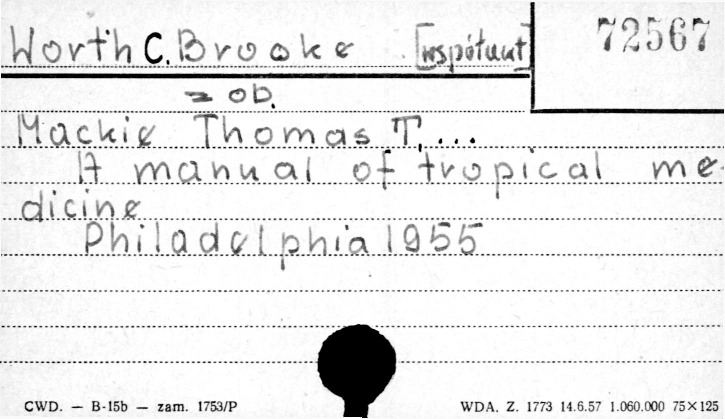 Worth C. Brooke [współaut] 72567
= ob.
Mackie Thomas T. ...
A manual of tropical me-
dicine
Philadelphia 1955
CWD. — B-15b — zam. 1753/P WDA. Z. 1773 14.6.57 1.060.000 75×125